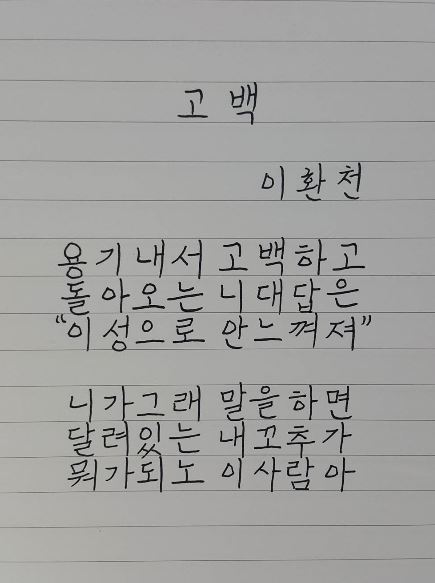 고백
이환천
용기내서 고백하고
돌아오는 니대답은
“이성으로 안느껴져”
니가그래 말을하면
달려있는 내꼬추가
뭐가되노 이사람아